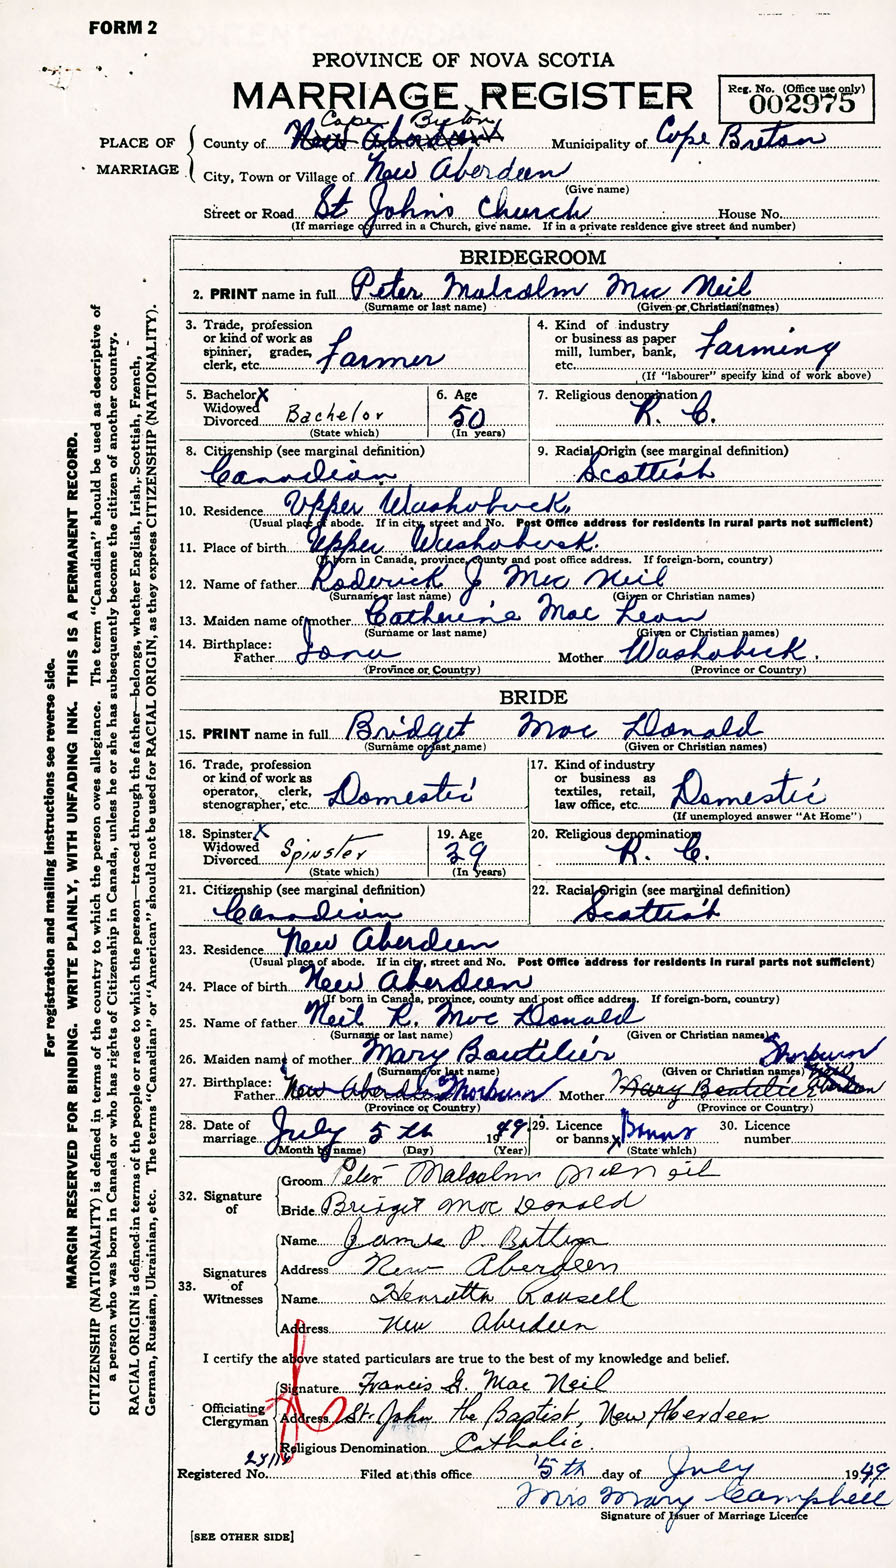 FORM 2
PROVINCE OF NOVA SCOTIA
MARRIAGE REGISTER
Reg. No. (Office use only)
002975
PLACE OF MARRIAGE
Cape Breton
County of New Aberdeen Municipality of Cape Breton
City, Town or Village of New Aberdeen
(Give name)
Street or Road St John's Church House No.
(If marriage occurred in a Church, give name. If in a private residence give street and number)
BRIDEGROOM
2. PRINT name in full Peter Malcolm Mac Neil
(Surname or last name) (Given or Christian names)
3. Trade, profession
or kind of work as
spinner, grader,
clerk, etc. Farmer
4. Kind of industry
or business as paper
mill, lumber, bank,
etc. Farming
(If "labourer" specify kind of work above)
5. Bachelor X
Widowed
Divorced Bachelor
(State which)
6. Age
50
(In years)
7. Religious denomination
R. C.
8. Citizenship (see marginal definition)
Canadian
9. Racial Origin (see marginal definition)
Scottish
10. Residence Upper Washabuck
(Usual place of abode. If in city, street and No. Post Office address for residents in rural parts not sufficient)
11. Place of birth Upper Washabuck.
(If born in Canada, province, county and post office address. If foreign-born, country)
12. Name of father Roderick J Mac Neil
(Surname or last name) (Given or Christian names)
13. Maiden name of mother Catherine Mac Lean
(Surname or last name) (Given or Christian names)
14. Birthplace:
Father Iona Mother Washabuck.
(Province or Country) (Province or Country)
BRIDE
15. PRINT name in full Bridget Mac Donald
(Surname or last name) (Given or Christian names)
16. Trade, profession
or kind of work as
operator, clerk,
stenographer, etc. Domestic
17. Kind of industry
or business as
textiles, retail,
law office, etc. Domestic
(If unemployed answer "At Home")
18. Spinster X
Widowed
Divorced Spinster
(State which)
19. Age
39
(In years)
20. Religious denomination
R. C.
21. Citizenship (see marginal definition)
Canadian
22. Racial Origin (see marginal definition)
Scottish
23. Residence New Aberdeen
(Usual place of abode. If in city, street and No. Post Office address for residents in rural parts not sufficient)
24. Place of birth New Aberdeen
(If born in Canada, province, county and post office address. If foreign-born, country)
25. Name of father Neil R. Mac Donald
(Surname or last name) (Given or Christian names)
26. Maiden name of mother Mary Boutilier Thorburn
(Surname or last name) (Given or Christian names)
27. Birthplace:
Father New Aberdeen Thorburn Mother Mary Boutilier New Aberdeen
(Province or Country) (Province or Country)
28. Date of
marriage July 5th 1949
(Month by name) (Day) (Year)
29. Licence
or banns X Banns
(State which)
30. Licence
number
32. Signature of
Groom Peter Malcolm MacNeil
Bride Bridget Mac Donald
33. Signatures of Witnesses
Name James P.
Address New Aberdeen
Name Henrietta Rousell
Address New Aberdeen
I certify the above stated particulars are true to the best of my knowledge and belief.
Officiating Clergyman
Signature Francis G. Mac Neil
Address St. John the Baptist, New Aberdeen
Religious Denomination Catholic.
Registered No. Filed at this office 5th day of July 1949
Mrs Mary Campbell
Signature of Issuer of Marriage Licence
[SEE OTHER SIDE]
For registration and mailing instructions see reverse side.
MARGIN RESERVED FOR BINDING. WRITE PLAINLY, WITH UNFADING INK. THIS IS A PERMANENT RECORD.
CITIZENSHIP (NATIONALITY) is defined in terms of the country to which the person owes allegiance. The term "Canadian" should be used as descriptive of
a person who was born in Canada or who has rights of Citizenship in Canada, unless he or she has subsequently become the citizen of another country.
RACIAL ORIGIN is defined in terms of the people or race to which the person—traced through the father—belongs, whether English, Irish, Scottish, French,
German, Russian, Ukrainian, etc. The terms "Canadian" or "American" should not be used for RACIAL ORIGIN, as they express CITIZENSHIP (NATIONALITY).